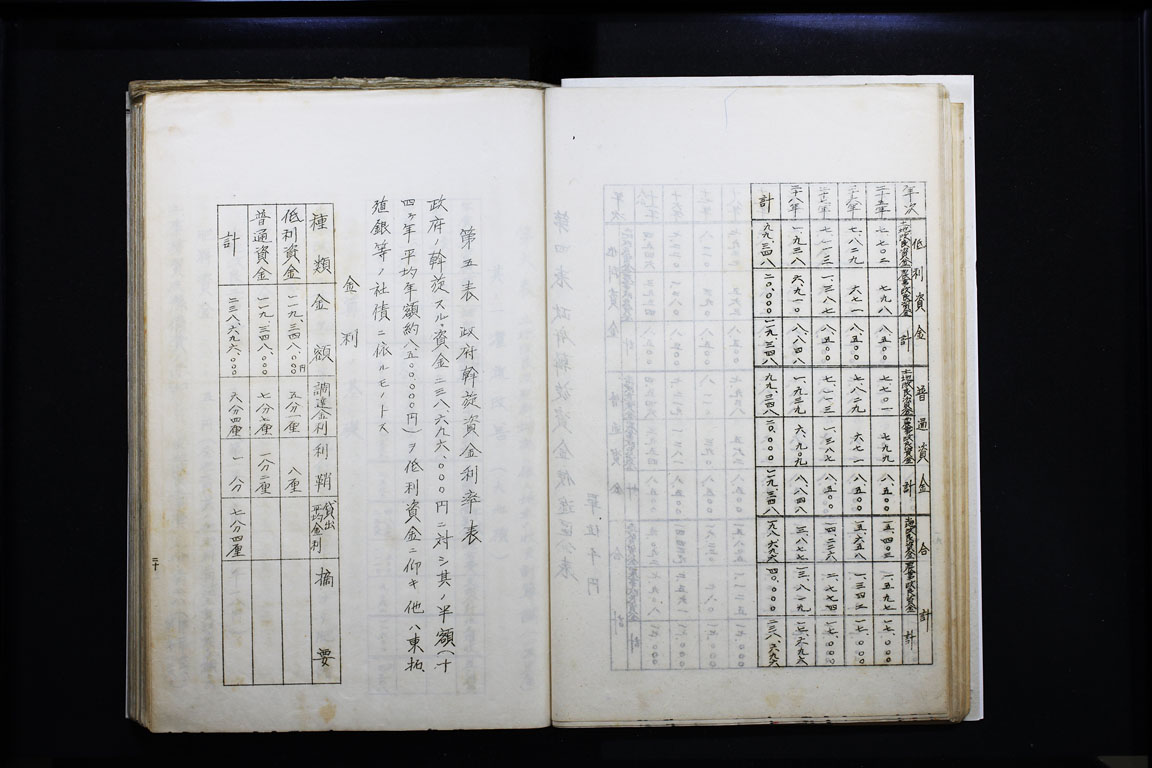 年次 低利資金 土地改良資金 農事改良資金 計 普通資金 土地改良資金 農事改良資金 計 合計 土地改良資金 農事改良資金 計
二十五年 七、七〇二 七九八 八、五〇〇 七、七〇一 七九九 八、五〇〇 一五、四〇三 一、五九七 一七、〇〇〇
二十六年 七、八二九 六七一 八、五〇〇 七、八二九 六七一 八、五〇〇 一五、六五八 一、三四二 一七、〇〇〇
二十七年 七、一一三 一、三八七 八、五〇〇 七、一一三 一、三八七 八、五〇〇 一四、二二六 二、七七四 一七、〇〇〇
二十八年 一、九三八 六、九一〇 八、八四八 一、九三九 六、九〇九 八、八四八 三、八七七 一三、八一九 一七、六九六
計 九九、三四八 二〇、〇〇〇 一一九、三四八 九九、三四八 二〇、〇〇〇 一一九、三四八 一九八、六九六 四〇、〇〇〇 二三八、六九六
第五表 政府斡旋資金利率表
政府ノ斡旋スル資金二三八、六九六、〇〇〇円ニ対シ其ノ半額(十
四ヶ年平均年額約八五〇〇、〇〇〇円)ヲ低利資金ニ仰キ他ハ東拓、
殖銀等ノ社債ニ依ルモノトス
金利
種類 金額 調達金利 利鞘 貸出平均金利 摘要
低利資金 一一九、三四八、〇〇〇円 五分一厘 八厘
普通資金 一一九、三四八、〇〇〇 七分七厘 一分二厘
計 二三八、六九六、〇〇〇 六分四厘 一分 七分四厘
二十